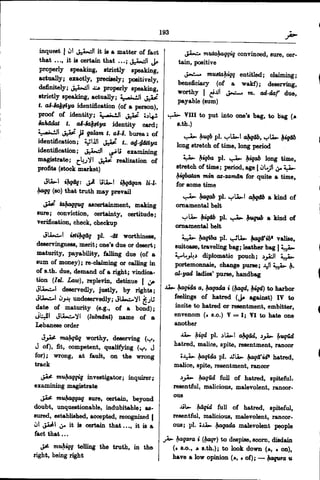 حقر
inquest | التحقيق ان it is a matter of fact
that ..., it is certain that ...; على التحقيق
properly speaking, strictly speaking,
actually, exactly, precisely; positively,
definitely; عند التحقيق properly speaking,
strictly speaking, actually; تحقيق الشخصية
t. aš-šaḵṣīya identification (of a person),
proof of identity; شهادة تحقيق الشخصية
šahādat t. aš-šaḵṣīya identity card;
قلم تحقيق الشخصية qalam t. aš-š. bureau of
identification; تحقيق الذاتية t. aḏ-ḏātīya
identification; قاضي التحقيق examining
magistrate; تحقيق الارباح realization of
profits (stock market)
احقاقا للحق iḥqāqan li-l-
ḥaqq (so) that truth may prevail
تحقق taḥaqquq ascertainment, making
sure; conviction, certainty, certitude;
verification, check, checkup
استحقاق istiḥqāq pl. -āt worthiness,
deservingness, merit; one's due or desert;
maturity, payability, falling due (of a
sum of money); re-claiming or calling in
of s.th. due, demand of a right; vindica-
tion (Isl. Law), replevin, detinue | عن
استحقاق deservedly, justly, by rights;
دون استحقاق undeservedly; تاريخ الاستحقاق
date of maturity (e.g., of a bond);
الاستحقاق اللبناني (lubnānī) name of a
Lebanese order
محقوق maḥqūq worthy, deserving (ب,
ل of), fit, competent, qualifying (ب, ل
for); wrong, at fault, on the wrong
track
محقق muḥaqqiq investigator; inquirer;
examining magistrate
محقق muḥaqqaq sure, certain, beyond
doubt, unquestionable, indubitable; as-
sured, established, accepted, recognized |
من المحقق ان it is certain that ..., it is a
fact that ...
محق muḥiqq telling the truth, in the
right, being right
متحقق mutaḥaqqiq convinced, sure, cer-
tain, positive
مستحق mustaḥiqq entitled; claiming;
beneficiary (of a wakf); deserving,
worthy | مستحق الدفع m. ad-dafʿ due,
payable (sum)
VIII to put into one's bag, to bag (ه
s.th.)
حقب ḥuqb pl. احقاب aḥqāb, حقاب ḥiqāb
long stretch of time, long period
حقبة ḥiqba pl. حقب ḥiqab long time,
stretch of time; period, age | حقبة من الزمان
ḥiqbatan min az-zamān for quite a time,
for some time
حقب ḥaqab pl. احقاب aḥqāb a kind of
ornamental belt
حقاب ḥiqāb pl. حقب ḥuqub a kind of
ornamental belt
حقيبة ḥaqība pl. حقائب ḥaqāʾib² valise,
suitcase, traveling bag; leather bag | حقيبة
دبلوماسية diplomatic pouch; حقيبة النقود
portemonnaie, change purse; حقيبة اليد ḥ.
al-yad ladies' purse, handbag
حقد ḥaqida a, ḥaqada i (ḥaqd, ḥiqd) to harbor
feelings of hatred (على against) IV to
incite to hatred or resentment, embitter,
envenom (ه s.o.) V = I; VI to hate one
another
حقد ḥiqd pl. احقاد aḥqād, حقود ḥuqūd
hatred, malice, spite, resentment, rancor
حقيدة ḥaqīda pl. حقائد ḥaqāʾid² hatred,
malice, spite, resentment, rancor
حقود ḥaqūd full of hatred, spiteful,
resentful, malicious, malevolent, rancor-
ous
حاقد ḥāqid full of hatred, spiteful,
resentful, malicious, malevolent, rancor-
ous; pl. حقدة ḥaqada malevolent people
حقر ḥaqara i (ḥaqr) to despise, scorn, disdain
(ه s.o., ه s.th.); to look down (ه, ه on),
have a low opinion (ه, ه of); — ḥaqura u